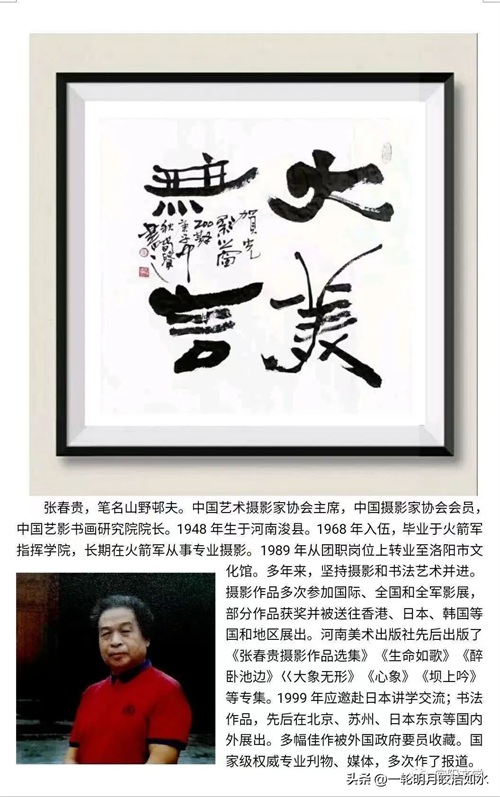 大美
無言
賀光
影蘭
200期
张春贵，笔名山野邨夫。中国艺术摄影家协会主席，中国摄影家协会会员，
中国艺影书画研究院院长。1948 年生于河南浚县。1968 年入伍，毕业于火箭军
指挥学院，长期在火箭军从事专业摄影。1989 年从团职岗位上转业至洛阳市文
化馆。多年来，坚持摄影和书法艺术并进。
摄影作品多次参加国际、全国和全军影展，
部分作品获奖并被送往香港、日本、韩国等
国和地区展出。河南美术出版社先后出版了
《张春贵摄影作品选集》《生命如歌》《醉
卧池边》《大象无形》《心象》《坝上吟》
等专集。1999 年应邀赴日本讲学交流；书法
作品，先后在北京、苏州、日本东京等国内
外展出。多幅佳作被外国政府要员收藏。国
家级权威专业利物、媒体，多次作了报道。
头条 @一轮明月皎洁如水